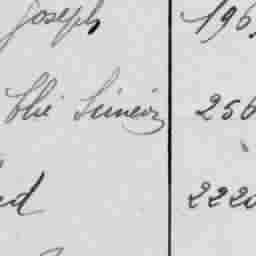 Joseph 196
Elie Siméon 256
ed 2220